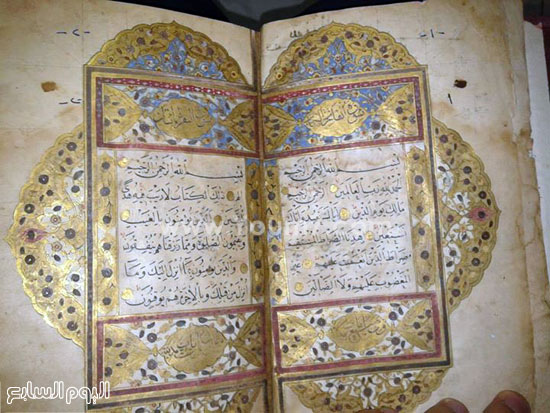 بسم الله الرحمن الرحيم
الحمد لله رب العالمين الرحمن الرحيم
مالك يوم الدين اياك نعبد واياك
نستعين اهدنا الصراط المستقيم
صراط الذين انعمت عليهم غير
المغضوب عليهم ولا الضالين
بسم الله الرحمن الرحيم
الم ذلك الكتاب لا ريب فيه هدى
للمتقين الذين يؤمنون بالغيب
ويقيمون الصلوة ومما رزقناهم ينفقون
والذين يؤمنون بما انزل اليك وما
انزل من قبلك وبالاخرة هم يوقنون
اليوم السابع